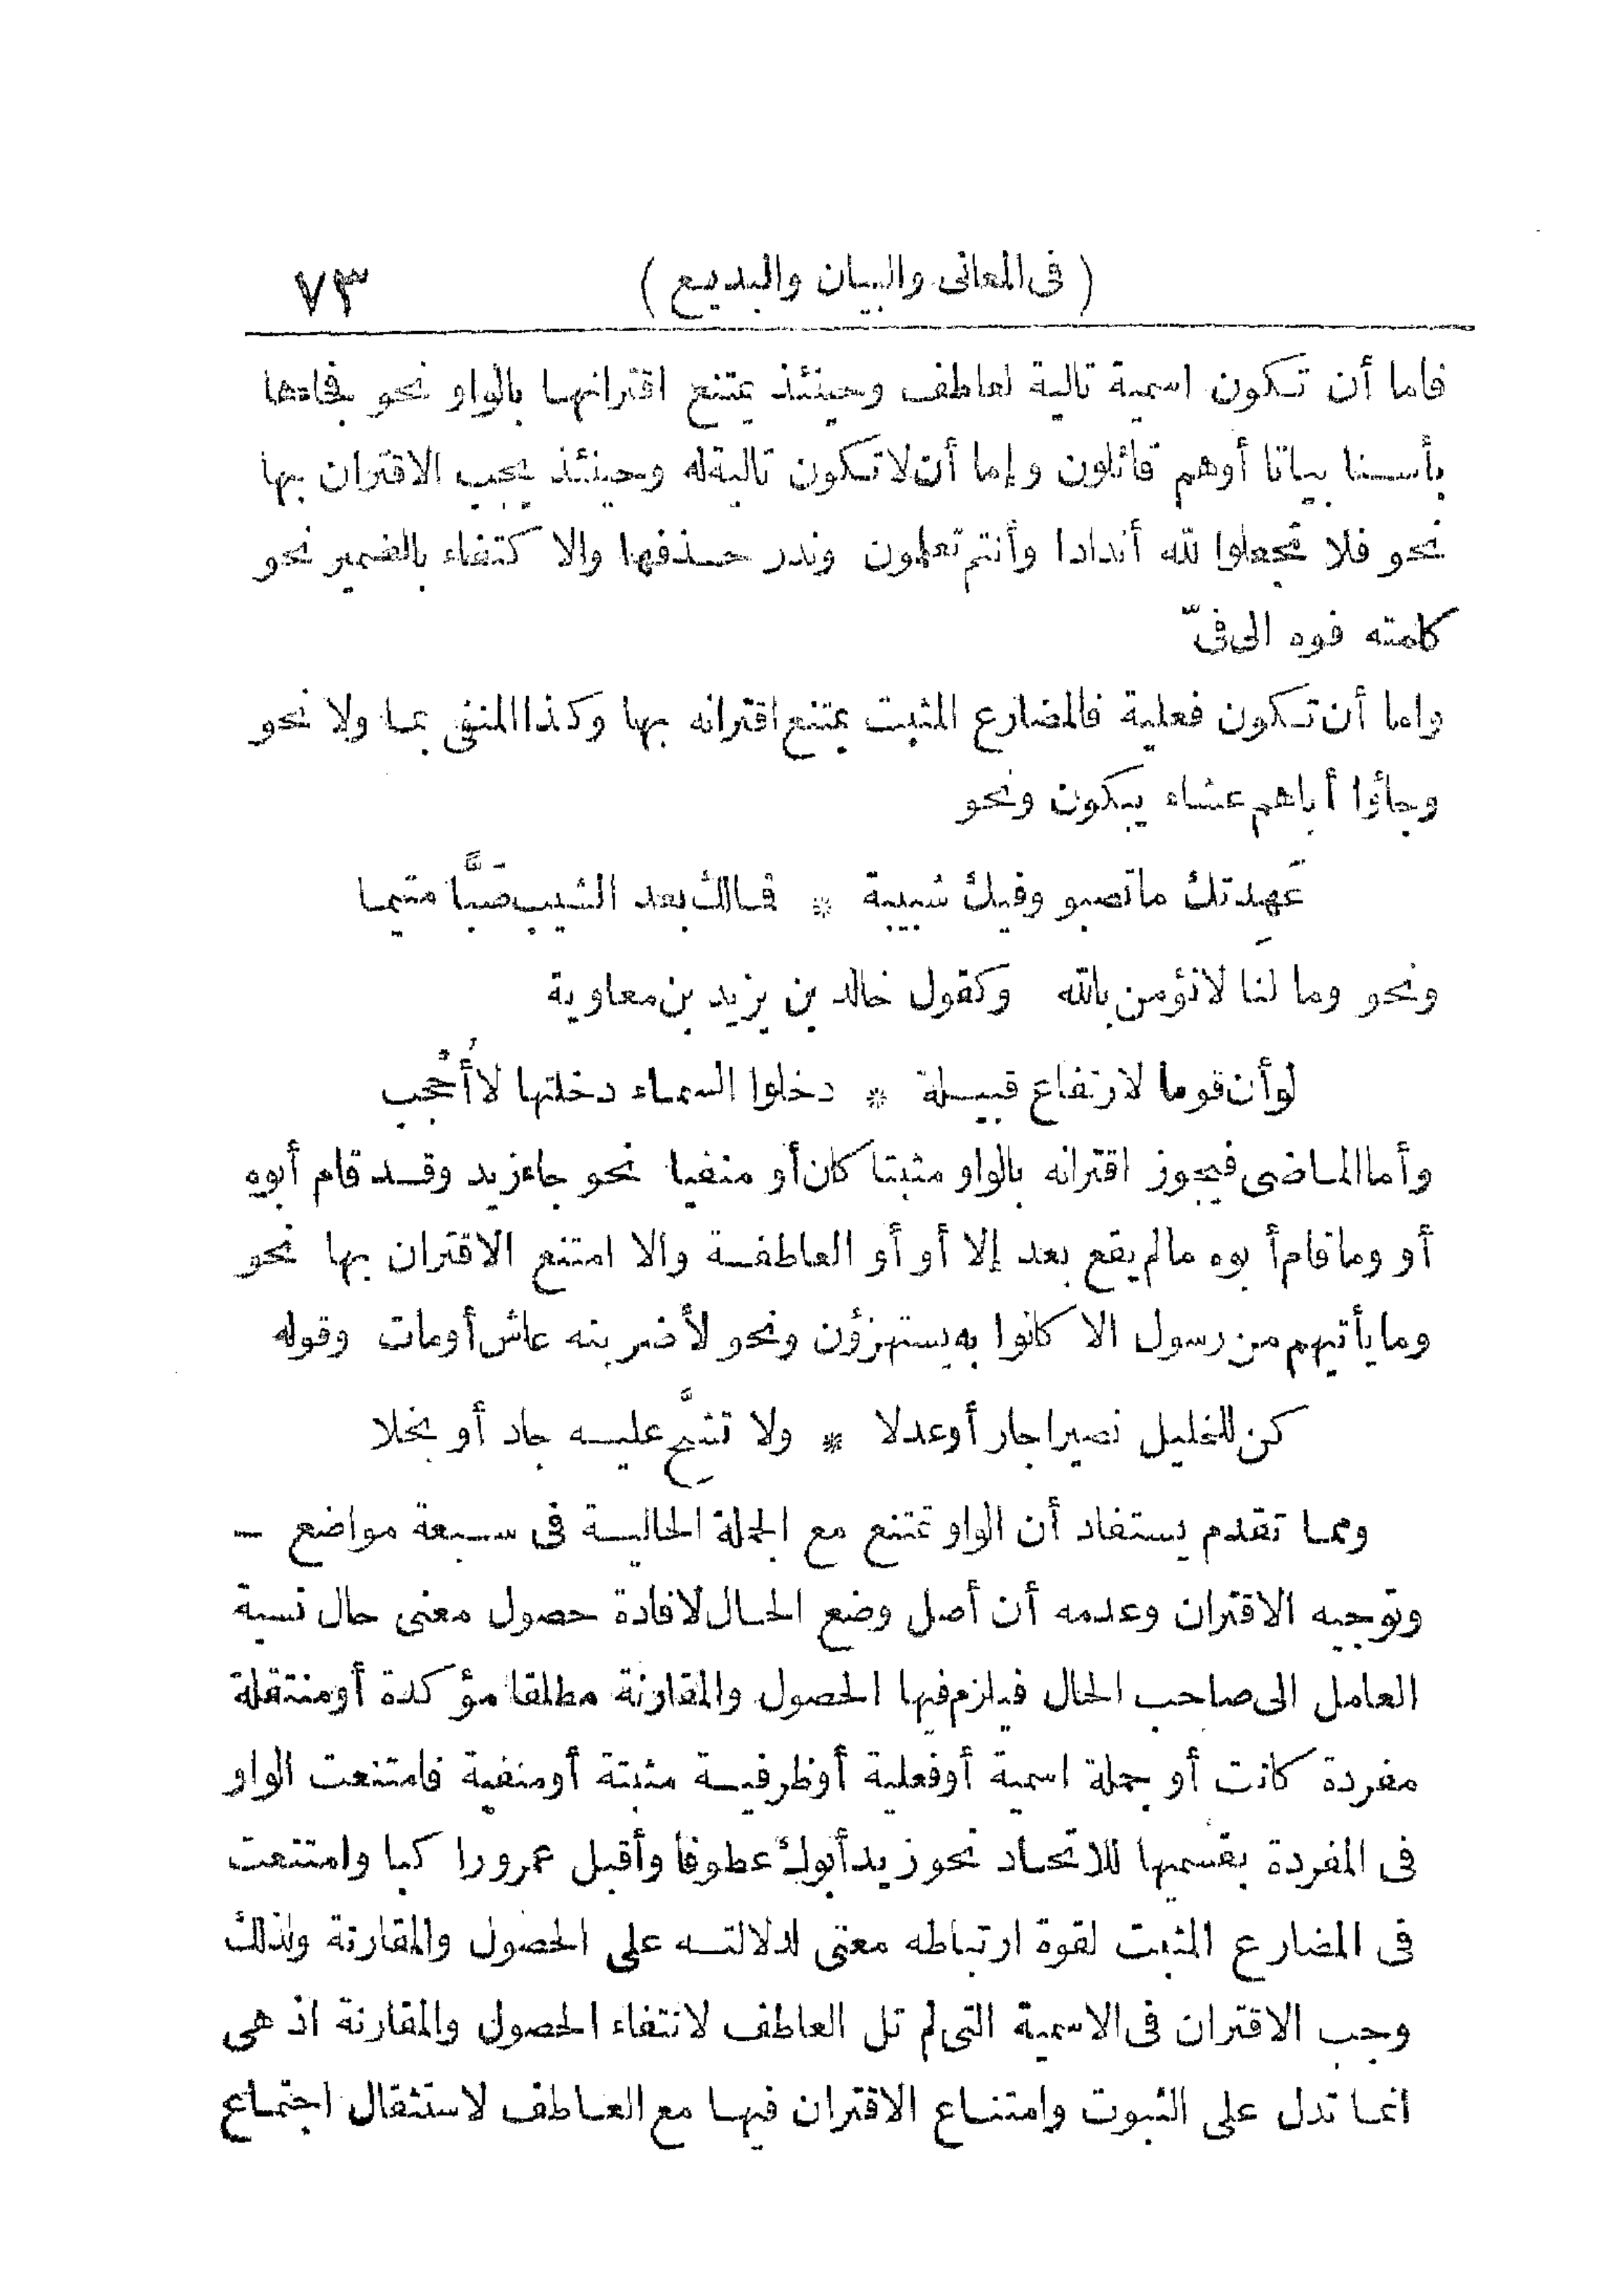 ( فى المعانى والبيان والبديع ) ٧٣
فاما أن تكون اسمية تالية لعاطف وحينئذ يمتنع اقترانها بالواو نحو فجاءها
بأسنا بياتا أوهم قائلون وإما أن لا تكون تالية له وحينئذ يجب الاقتران بها
نحو فلا تجعلوا لله أندادا وأنتم تعلمون وندر حذفها والا كتفاء بالضمير نحو
كلمته فوه الى فىّ
واما أن تكون فعلية فالمضارع المثبت يمتنع اقترانه بها وكذا المنفى بما ولا نحو
وجاؤا أباهم عشاء يبكون ونحو
عَهِدتك ما تصبو وفيك شبيبة * فمالك بعد الشيب صَبًّا متيما
ونحو وما لنا لا نؤمن بالله وكقول خالد بن يزيد بن معاوية
لو أن قوما لارتفاع قبيلة * دخلوا السماء دخلتها لا أُحْجب
وأما الماضى فيجوز اقترانه بالواو مثبتا كان أو منفيا نحو جاء زيد وقد قام أبوه
أو وما قام أبوه ما لم يقع بعد إلا أو أو العاطفة والا امتنع الاقتران بها نحو
وما يأتيهم من رسول الا كانوا به يستهزؤن ونحو لأضربنه عاش أومات وقوله
كن للخليل نصيرا جار أوعدلا * ولا تشحَّ عليه جاد أو بخلا
ومما تقدم يستفاد أن الواو تمتنع مع الجملة الحالية فى سبعة مواضع –
وتوجيه الاقتران وعدمه أن أصل وضع الحال لافادة حصول معنى حال نسبة
العامل الى صاحب الحال فيلزم فيها الحصول والمقارنة مطلقا مؤكدة أومنتقلة
مفردة كانت أو جملة اسمية أوفعلية أوظرفية مثبتة أومنفية فامتنعت الواو
فى المفردة بقسميها للاتحاد نحو زيد أبوك عطوفا وأقبل عمرو راكبا وامتنعت
فى المضارع المثبت لقوة ارتباطه معنى لدلالته على الحصول والمقارنة ولذلك
وجب الاقتران فى الاسمية التى لم تل العاطف لانتفاء الحصول والمقارنة اذ هى
انما تدل على الثبوت وامتناع الاقتران فيها مع العاطف لاستثقال اجتماع